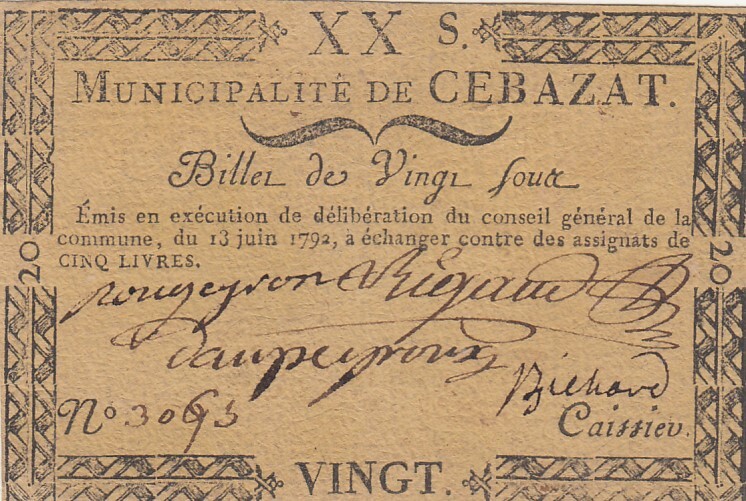 XX S.
MUNICIPALITÉ DE CEBAZAT.
Billet de Vingt sous
Émis en exécution de délibération du conseil général de la
commune, du 13 juin 1792, à échanger contre des assignats de
CINQ LIVRES.
20
20
Rigaud
Richard
No
Caissier.
VINGT.